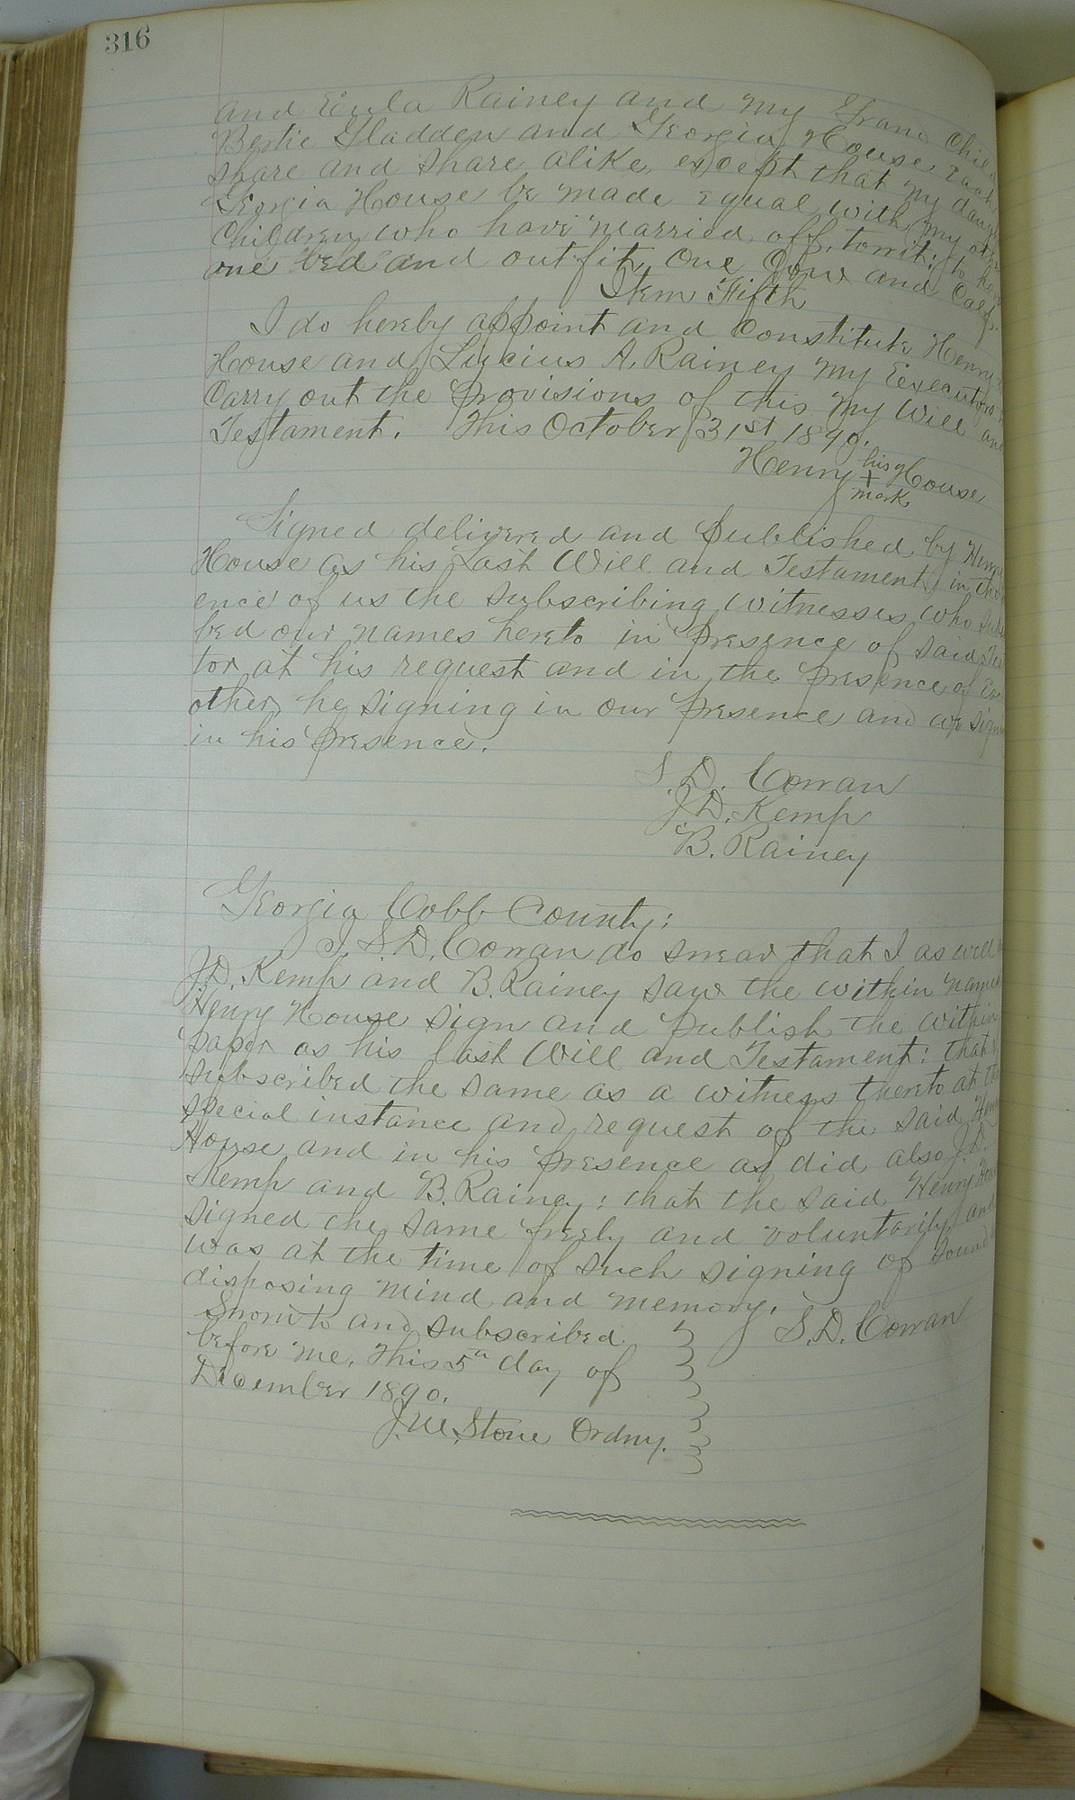 316
and Eula Rainey and my Grand Child
Bertie Gladden and Georgia House, Each
share and share alike, except that my daugh
Georgia House be made equal with my other
Children who have married off, towit: to have
one bed and outfit, One Cow and Calf.
Item Fifth
I do hereby appoint and Constitute Henry
House and Lucius A. Rainey my Executors
Carry out the Provisions of this my Will and
Testament. This October 31st 1890.
Henry his House
+
mark
Signed delivered and published by Henry
House as his Last Will and Testament, in the
ence of us the subscribing witnesses who subs
bed our names hereto in presence of said Tes
tor at his request and in the presence of Each
other, he signing in our presence and we signing
in his presence.
S. D. Cowan
J. D. Kemp
B. Rainey
Georgia Cobb County:
I, S. D. Cowan do swear that I as well
J. D. Kemp and B. Rainey saw the within named
Henry House sign and publish the within
paper as his last Will and Testament: that I
subscribed the same as a witness thereto at the
special instance and request of the said Henry
House, and in his presence as did also J. D.
Kemp and B. Rainey: that the said Henry House
signed the same freely and voluntarily and
was at the time of such signing of sound
disposing mind and memory.
Sworn to and subscribed S. D. Cowan
before me. This 5th day of
December 1890.
J. M. Stone Ordny.